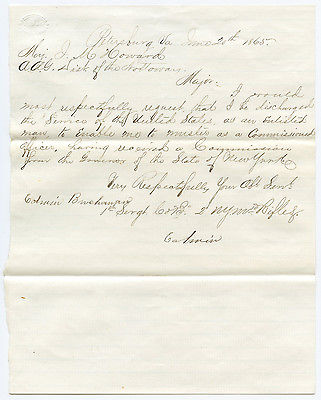 Petersburg Va June 20th 1865.
Maj. J. M. Howard
A.A.G. Dist of the Nottoway
Major
I would
most respectfully request that I be discharged
the Service of the United States, as an Enlisted
man, to Enable me to muster as a Commissioned
Officer, having received a Commission
from the Governor of the State of New York.
Very Respectfully Your Obt Servt
Edwin
1st Sergt Co 2 NY Mtd Rifles
Edwin